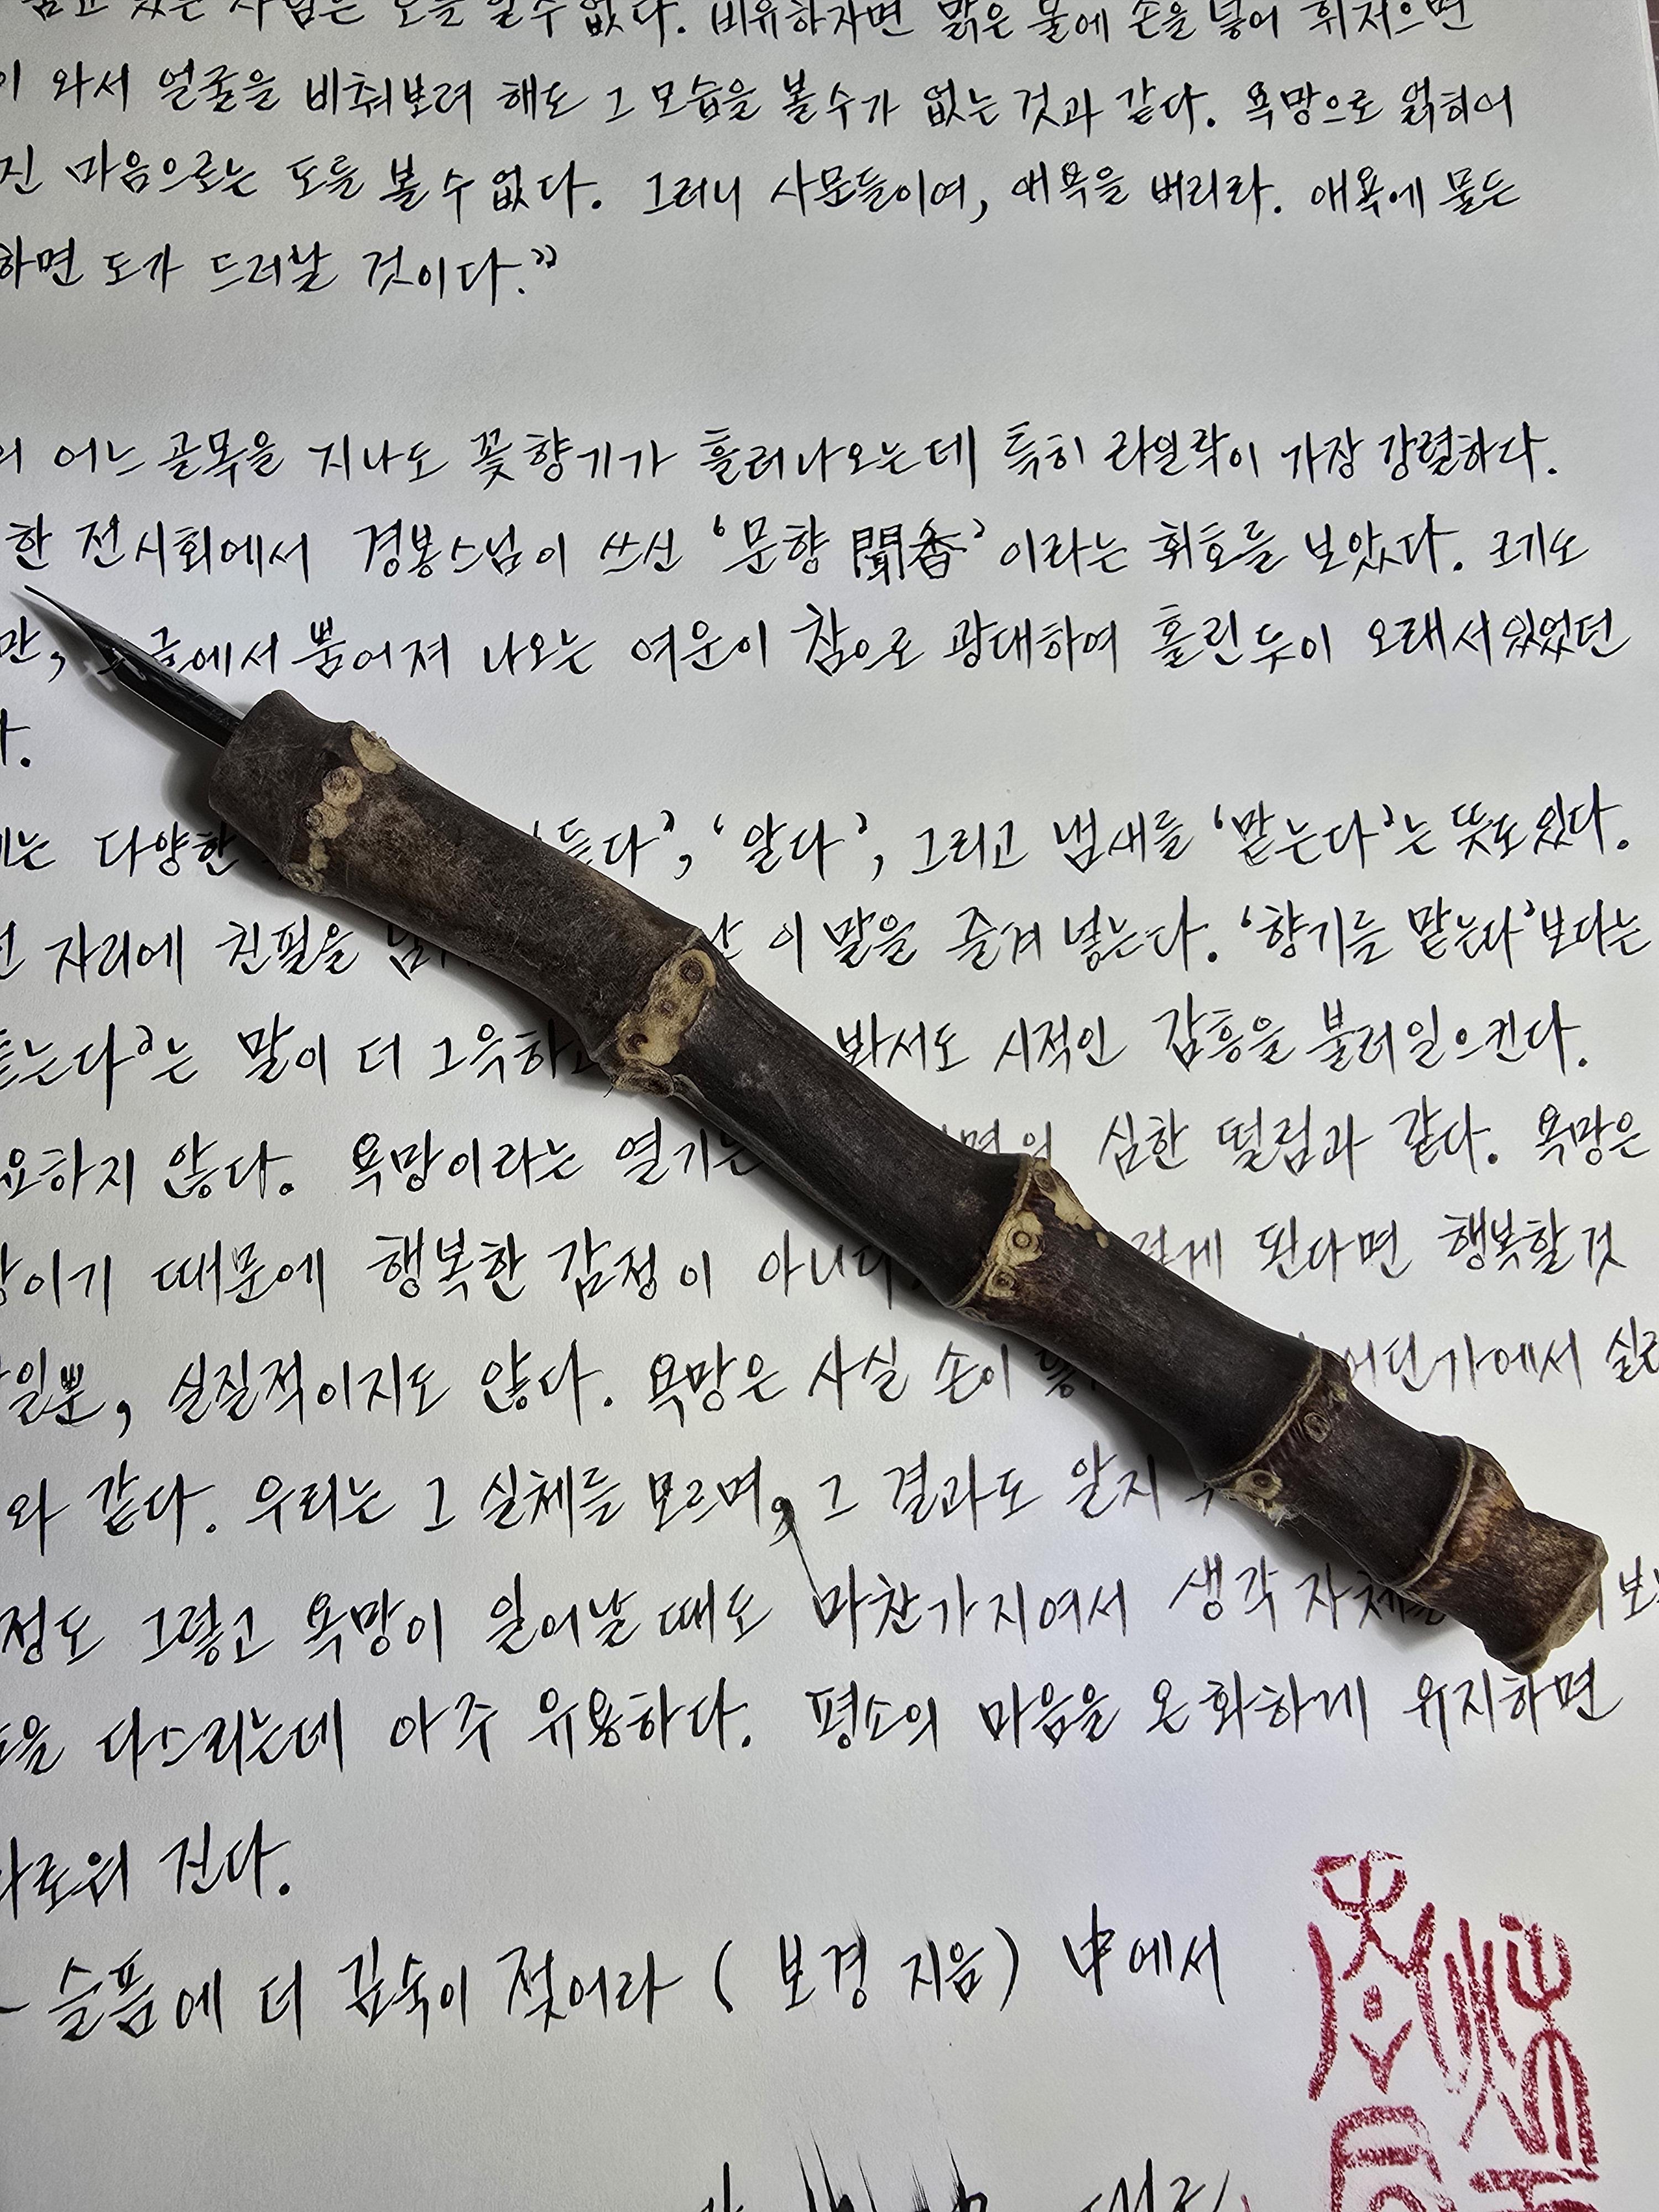 품고 있는 사람은 도를 알 수 없다. 비유하자면 맑은 물에 손을 넣어 휘저으면
이 와서 얼굴을 비춰보려 해도 그 모습을 볼 수가 없는 것과 같다. 욕망으로 얽히어
진 마음으로는 도를 볼 수 없다. 그러니 사문들이여, 애욕을 버리라. 애욕에 물든
하면 도가 드러날 것이다."
의 어느 골목을 지나도 꽃향기가 흘러나오는데 특히 라일락이 가장 강렬하다.
한 전시회에서 경봉스님이 쓰신 '문향 聞香' 이라는 휘호를 보았다. 크기도
만, 글에서 뿜어져 나오는 여운이 참으로 광대하여 홀린듯이 오래 서있었던
다.
에는 다양한 듣다', '알다', 그리고 냄새를 '맡는다'는 뜻도 있다.
자리에 친필을 이 말을 즐겨 넣는다. '향기를 맡는다'보다는
듣는다'는 말이 더 그윽하고 봐서도 시적인 감흥을 불러일으킨다.
요하지 않다. 욕망이라는 열기는 심한 떨림과 같다. 욕망은
이기 때문에 행복한 감정이 아니다. 된다면 행복할 것
일뿐, 실질적이지도 않다. 욕망은 사실 손이 어딘가에서
와 같다. 우리는 그 실체를 모르며, 그 결과도 알지
정도 그렇고 욕망이 일어날 때도 마찬가지여서 생각 자체를
을 다스리는데 아주 유용하다. 평소의 마음을 온화하게 유지하면
로워 진다.
- 슬픔에 더 깊숙이 젖어라 ( 보경 지음 ) 中에서